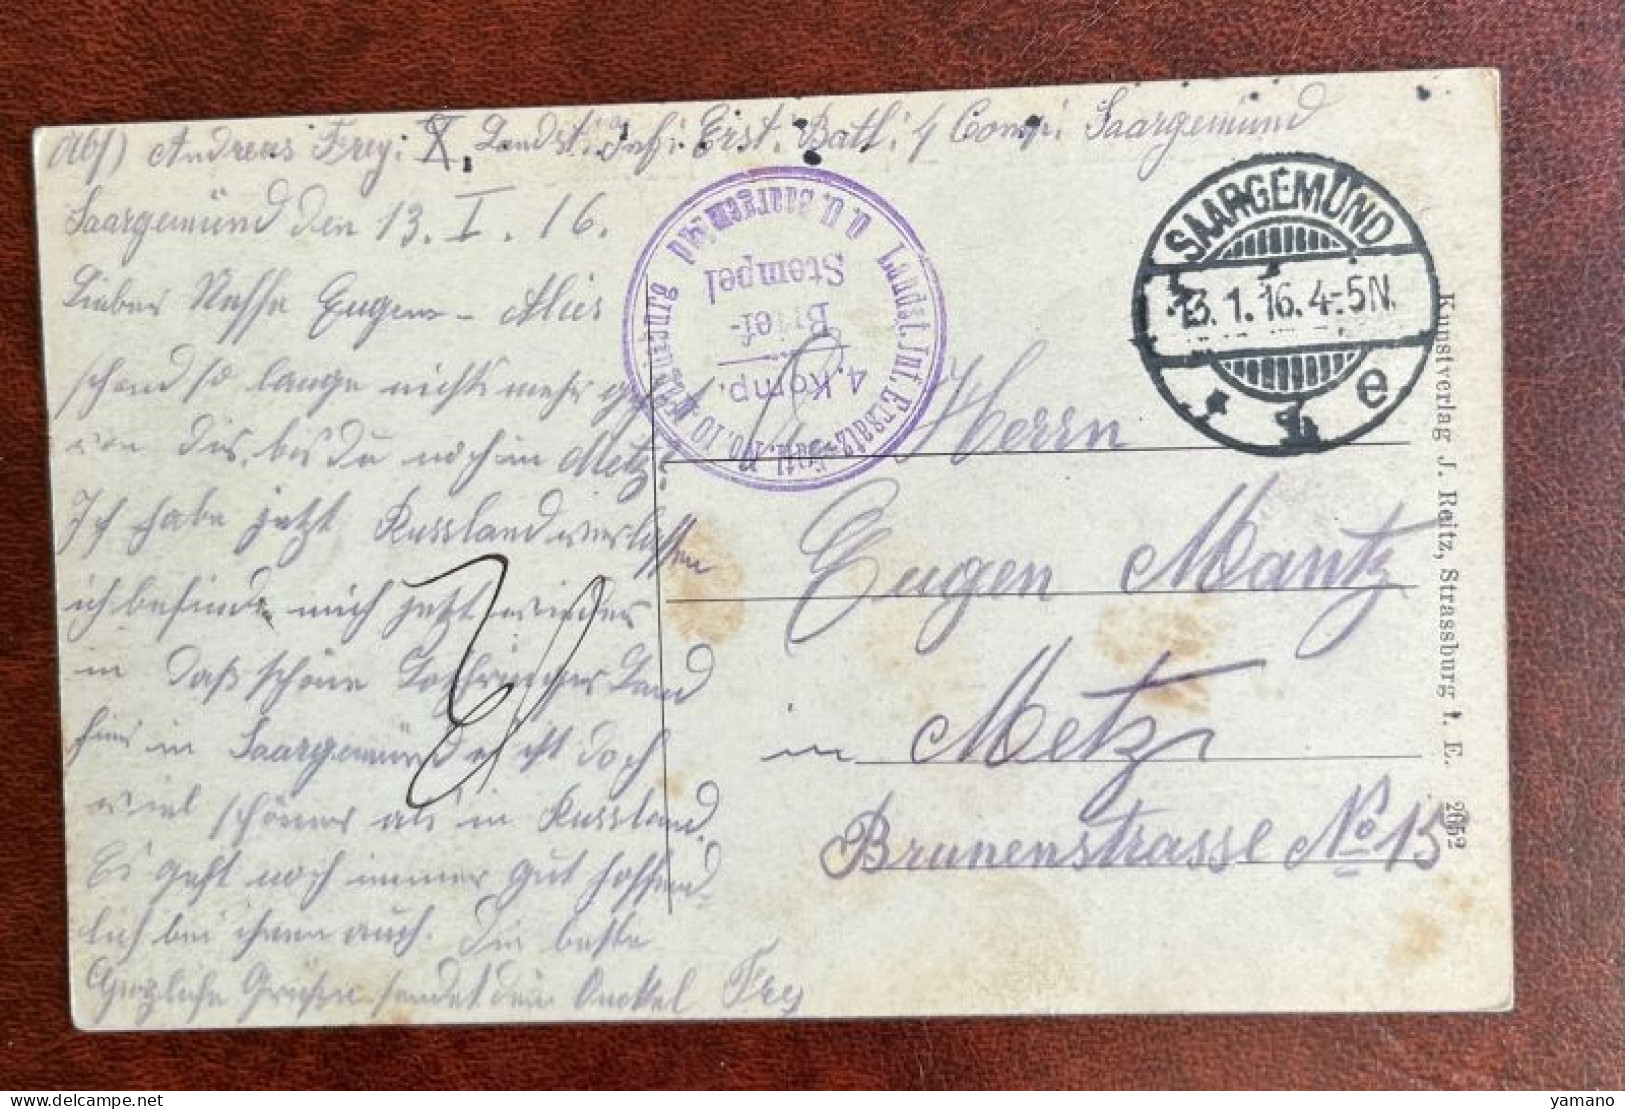 Abs) Andreas Frey: X Landst. Inf: Erst. Batl: 4 Comp: Saargemünd
Saargemünd den 13. I. 16.
Lieber Neffe Eugen – Alles
schond so lange nichts mehr
von dir, bis du noch in Metz?
Ich habe jetzt Russland verlassen
ich befinde mich jetzt wieder
in daß schöne Lothringer Land
hier in Saargemünd es ist doch
viel schöner als in Russland.
Es geht noch immer gut hoffend-
lich bei ihnen auch. Die beste
Herzliche Grüße sendet dein Onkkel Frey
Landst. Inf. Ersatz-Batl. No. 10
Saargemünd
4. Komp.
Brief-
Stempel
SAARGEMÜND
13.1.16.4-5N.
* e
Herrn
Eugen Mantz
in Metz
Brunenstrasse No 15
Kunstverlag J. Reitz, Strassburg i. E. 2652
yamano